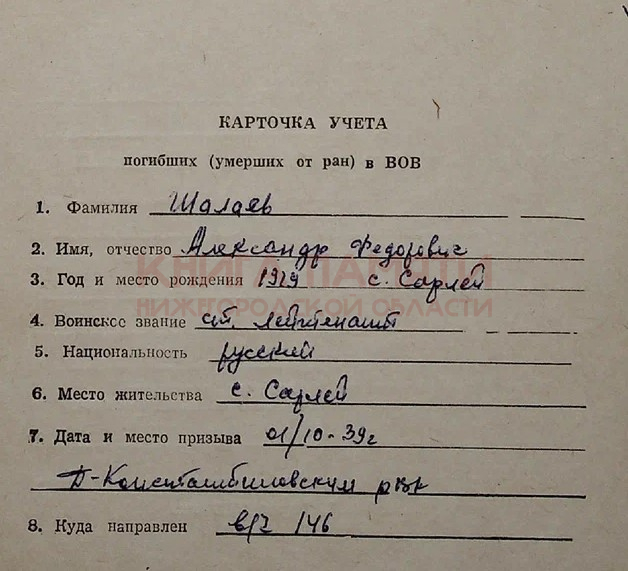 КАРТОЧКА УЧЕТА
погибших (умерших от ран) в ВОВ
1. Фамилия Шалаев
2. Имя, отчество Александр Федорович
КНИГА ПАМЯТИ
3. Год и место рождения 1919 с. Сарлей
НИЖЕГОРОДСКОЙ ОБЛАСТИ
4. Воинское звание ст. лейтенант
5. Национальность русский
6. Место жительства с. Сарлей
7. Дата и место призыва 01/10-39г
Д-Константиновским рвк
8. Куда направлен в/ч 146